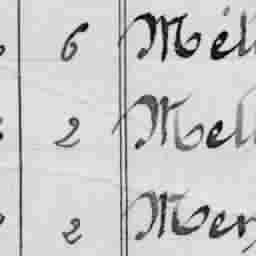 6 Mél
2 Mell
2 Mer